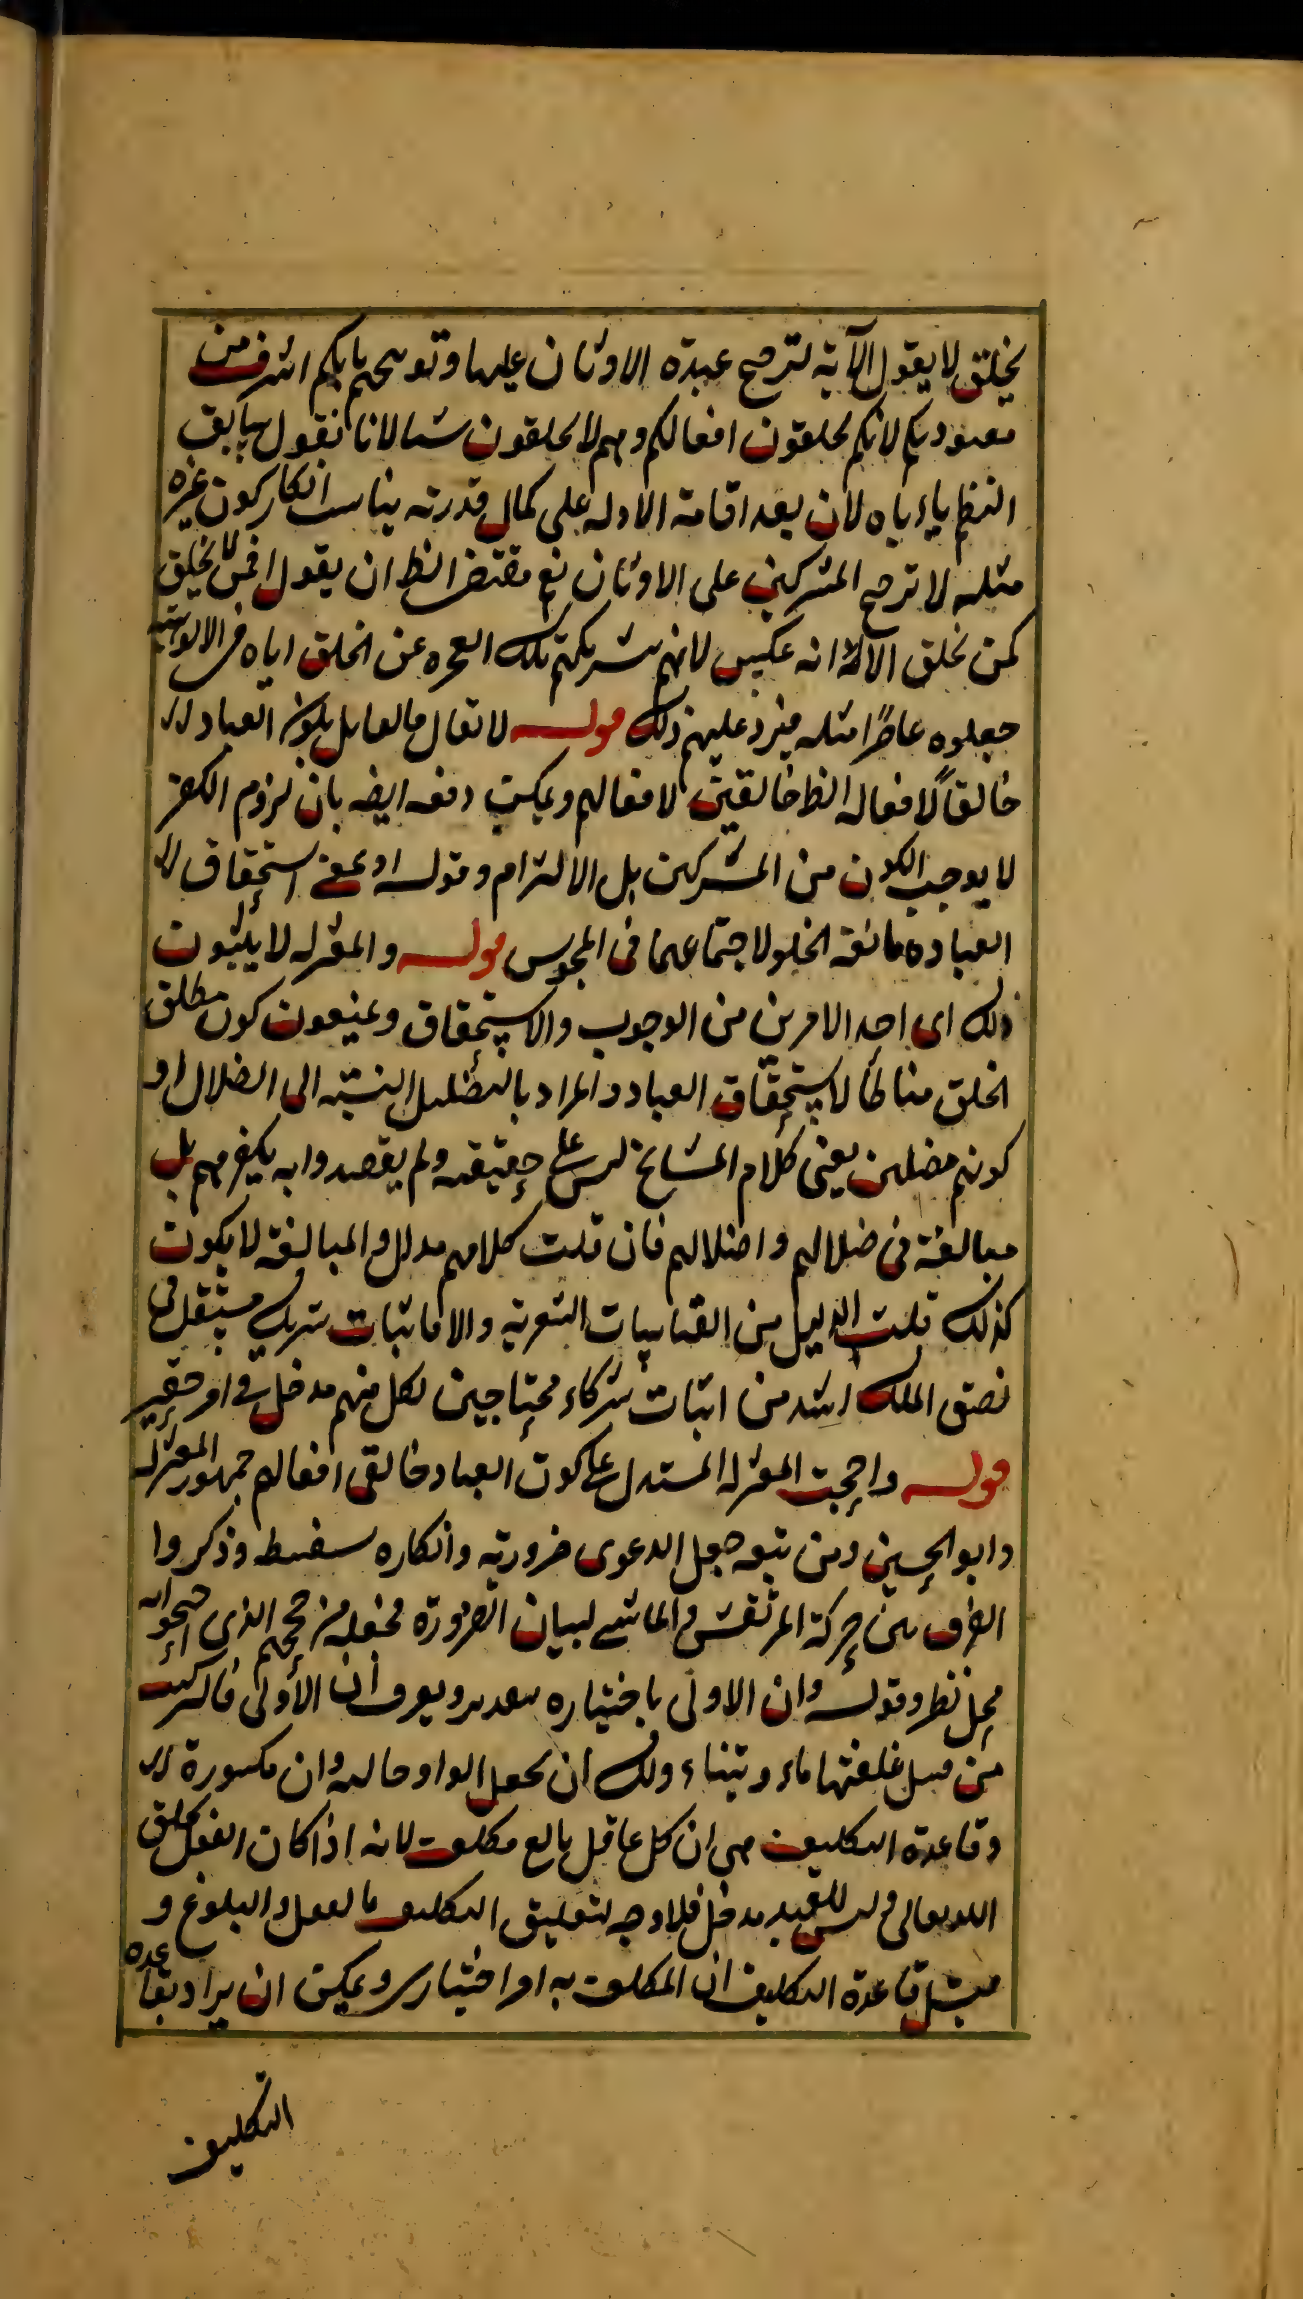 يخلق لا يقول الآية لترجيح عبدة الاوثان عليها وتوبيخهم بانكم اشرف من
معبوديكم لانكم تخلقون افعالكم وهم لا يخلقون شيئا لانا نقول سابق
النظم ياء باه لان بعد اقامة الادلة على كمال قدرته يناسب انكار كون غيره
مثله لا ترجيح المشركين على الاوثان نع مقتضى النظ ان يقول افمن لا يخلق
كمن يخلق الا انه عكس لانهم بشريكتهم تلك العجزة عن الخلق اياه في الالوهية
جعلوه عاجزا مثله فيرد عليهم ذلك قوله لا تقال فالقائل بكون العباد
خالقا لافعاله الظ خالقين لافعالهم ويمكن دفعه ايضه بان لزوم الكفر
لا يوجب الكون من المشركين بل الالتزام وقوله او بمعنى استحقاق
العبادة مانعة الخلو لاجتماعهما في المجوس قوله والمعتزلة لا يثبتون
ذلك اى احد الامرين من الوجوب والاستحقاق ويمنعون كون مطلق
الخلق مناطا لاستحقاق العباد والمراد بالتضليل النسبة الى الضلال او
كونهم مضلين يعنى كلام المشايخ ليس على حقيقته ولم يقصدوا به تكفيرهم بل
مبالغة في ضلالهم واضلالهم فان قلت كلامهم مدلل والمبالغة لا يكون
كذلك قلت الدليل من القياسيات الشعرية والا فاثبات شريك مستقل في
نصق الملك اشد من اثبات شركاء محتاجين لكل منهم مدخل في امر حقير
قوله واحتجت المعتزلة المستدل على كون العباد خالقى افعالهم جمهور المعتزلة
وابو الحسين ومن تبعه جعل الدعوى ضرورية وانكاره سفسطه وذكروا
الفرق بين حركة المرتعش والماشى لبيان الضرورة فجعله من حججهم الذى احتجوا به
محل نظر وقوله وان الاولى باختياره بتقدير ويعرف ان الاولى فالتركيب
من قبيل علفتها ماء وتبنا ولك ان تجعل الواو حالية وان مكسورة
وقاعدة التكليف هي ان كل عاقل بالغ مكلف لانه اذا كان الفعل بخلق
الله تعالى وليس للعبد مدخل فلا وجه لتعليق التكليف بالعقل والبلوغ و
قاعدة التكليف ان المكلف به امر اختيارى ويمكن ان يراد بقاعدة
التكليف